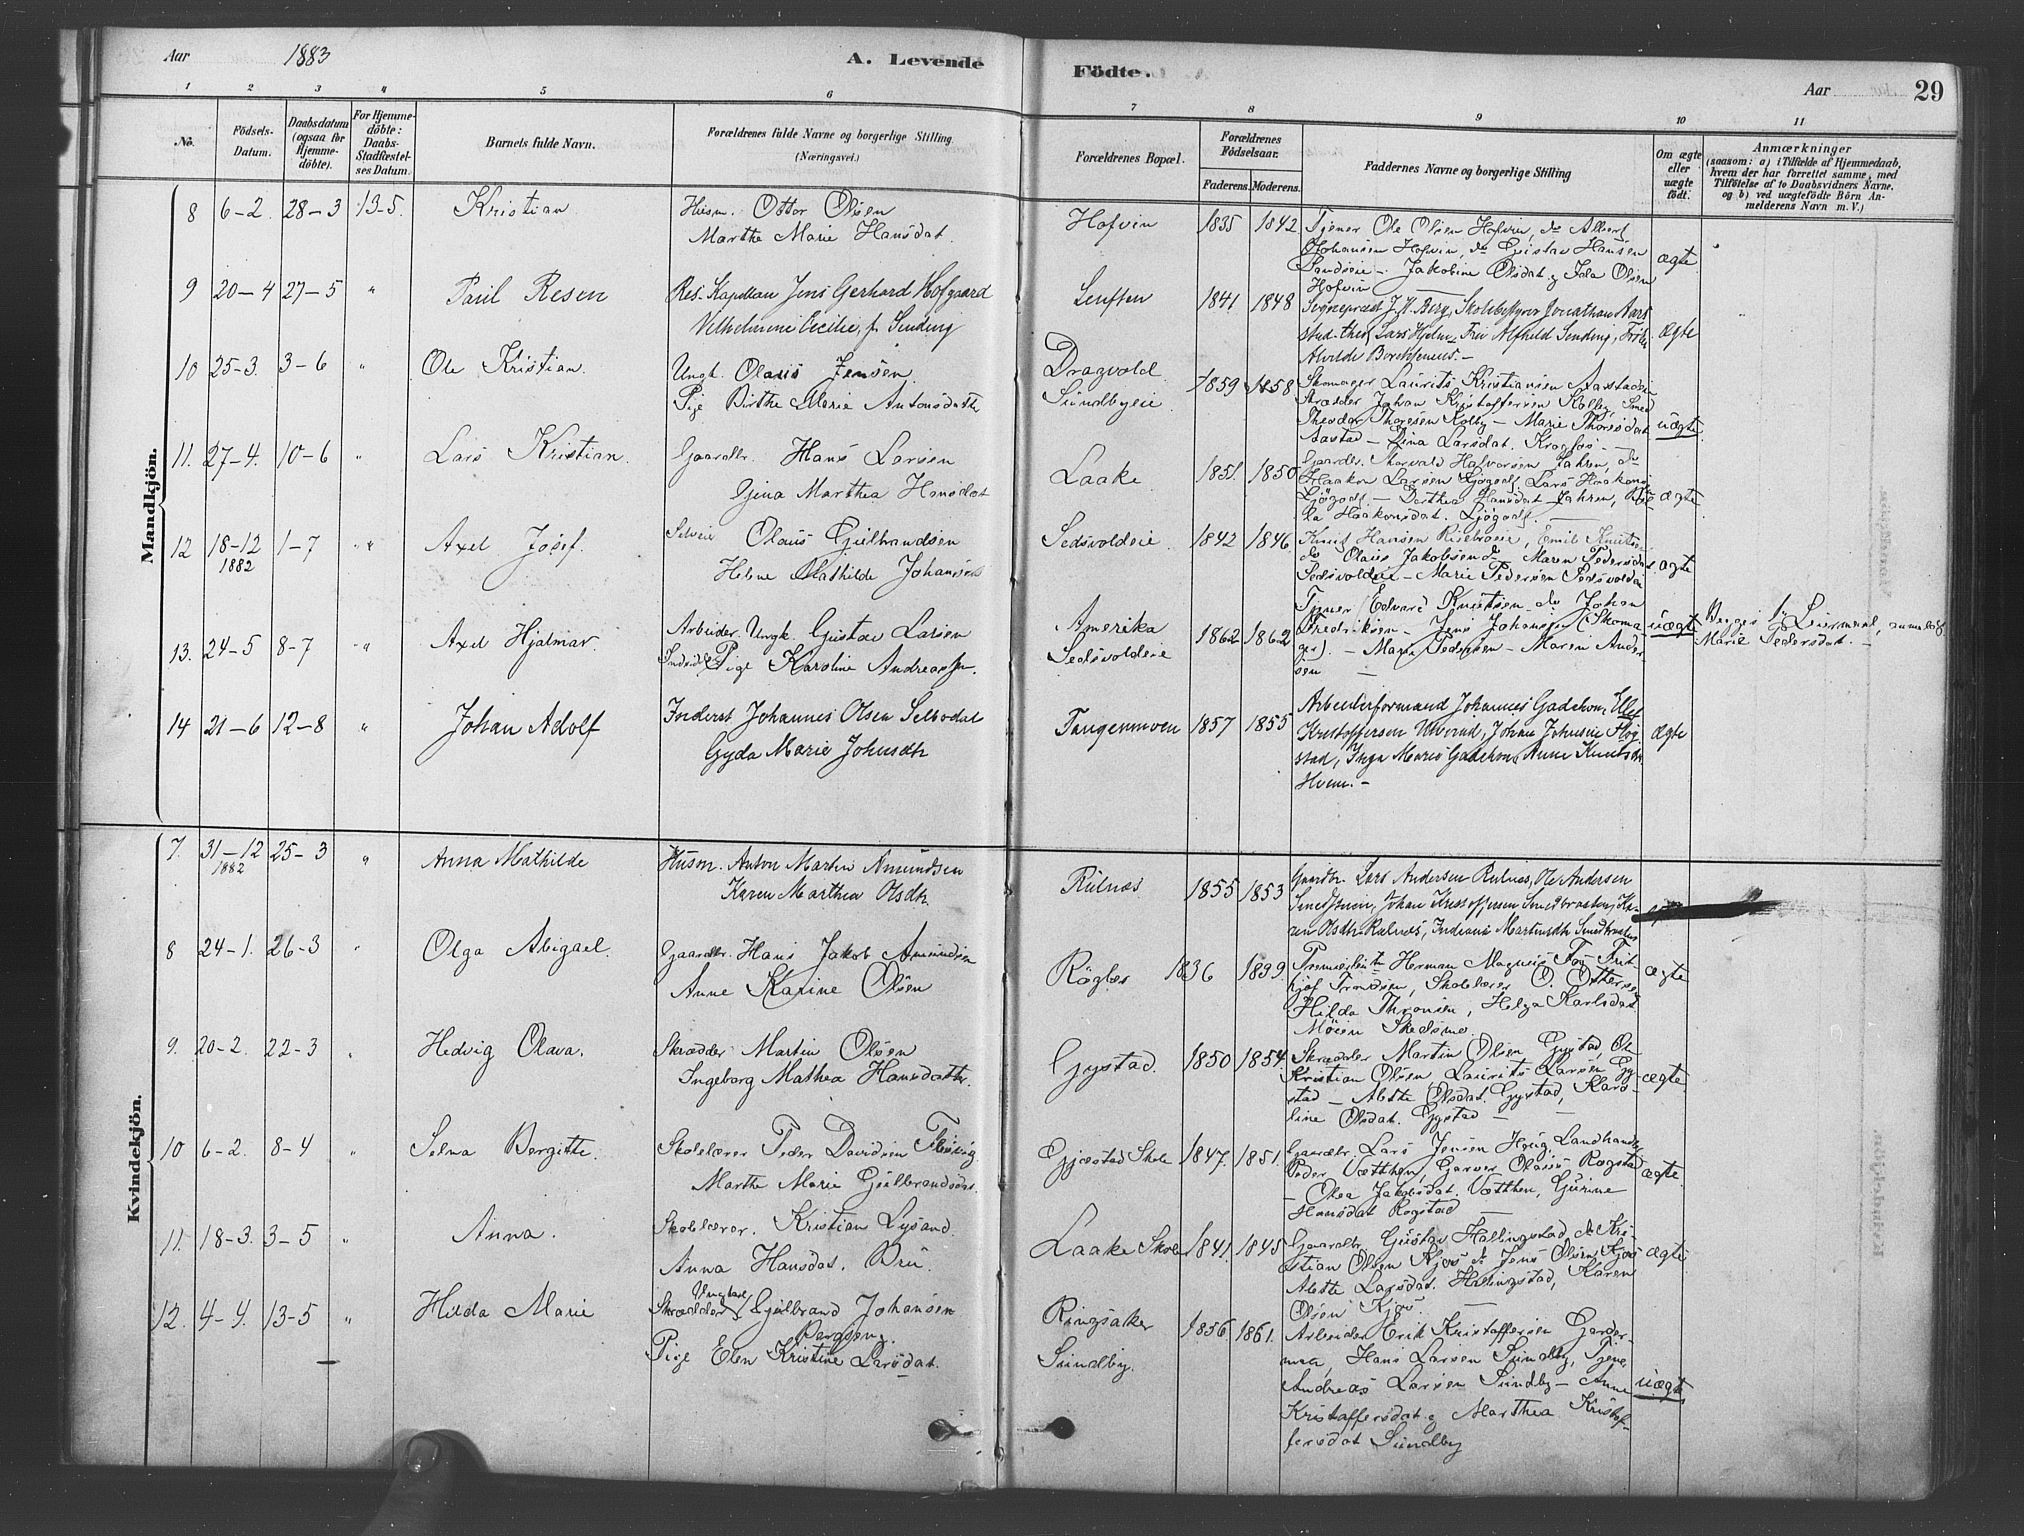 Aar 1883 A. Levende Födte. Aar 29
1 2 3 4 5 6 7 8 9 10 11
No. Födsels-Datum. Daabsdatum (ogsaa for Hjemmedöbte). For Hjemmedöbte: Daabs-Stadfæstelses Datum. Barnets fulde Navn. Forældrenes fulde Navne og borgerlige Stilling (Næringsvei.) Forældrenes Bopæl. Forældrenes Födselsaar. Faderens. Moderens. Faddernes Navne og borgerlige Stilling Om ægte eller uægte födt. Anmærkninger (saasom: a) i Tilfælde af Hjemmedaab, hvem der har forrettet samme, med Tilföielse af to Daabsvidners Navne, og b) ved uægtefödte Börn Anmelderens Navn m. V.)
Mandkjön.
8 6-2. 28-3 13-5. Kristian Husm. Ottar Olsen
Marthe Marie Hansdat.
Hofvin 1835 1842 Tjener Ole Olsen Hofvin, do Albert
Johansen Hofvin, do Gustav Hansen
Jakobine Olsdat. g Ida Olsen
Hofvin
ægte
9 20-4 27-5 " Paul Resen Res. Kapellan Jens Gerhard Hofgaard
Vilhelmine Cecilie, f. Sinding
1841 1848 Sogneprest J. N. Berg, Skolebestyrer Jonathan Aars
stud. theol. Lars Hjelm, Fru Alfhild Sinding, Frøken
Alvilde Borchsenius.-
ægte
10 25-3. 3-6 " Ole Kristian. Ungk. Olaus Jensen.
Pige Birthe Marie Antonsdatt.
Dragvold
Sundbyeie
1859 1858 Skomager Laurits Kristiansen Aarstadeie
Skrædder Johan Kristoffersen Kolby, Smed
Theodor Thoresen Kolby - Marie Thoresdat
Aastad - Dina Larsdat. Krogfos -
uægte
11. 27-4. 10-6 " Lars Kristian. Gaardbr. Hans Larsen
Gina Marthea Hansdat
Laake 1851. 1850 Gaardbr. Thorvald Halvorsen Jahren, do
Haakon Larsen Ljøgodt, Lars Haakons.
Ljøgodt - Dorthea Hansdat. Jahren,
Haakonsdat. Ljøgodt.
ægte
12 18-12 1882 1-7 " Axel Josef. Selveier Olaus Gulbrandsen
Helene Mathilde Johansen
Sedsvoldeie 1842 1846. Knud Hansen Risebroeie, Emil Knutsen
do Olaus Jakobsen do Maren Pedersdat
Sedsvoldeie - Marie Pedersen Sedsvoldeie
ægte
13. 24-5 8-7 " Axel Hjalmar. Arbeider. Ungk. Gustav Larsen
Pige Karoline Andreassen.
Amerika
Sedsvoldeie
1862 1862 Tjener Edvard Knutsen do Johan
Fredriksen - Jens Johansen (Skoma-
ger). - Marie Pedersen - Maren Ander-
sen -
uægte
anmeldt
Marie Pedersdat. -
14 21-6 12-8 " Johan Adolf Inderst Johannes Olsen Selbodal
Gyda Marie Johnsdtr
Tangenmoen 1857 1855 Arbeiderformand Johannes Gadehom,
Kristoffersen Ulvind, Johan Johnsen Hog-
stad, Inga Marie Gadehom, Anne Knutsdtr
Hvam.-
ægte
Kvindekjön.
7. 31-12 1882 25-3 " Anna Mathilde Husm. Anton Martin Amundsen
Karen Marthea Olsdtr.
Rulnæs 1855 1853 Gaardbr. Lars Andersen Rulnæs, Ole Andersen
Johan Kristoffersen Smedbraaten, Ka-
ren Olsdtr. Rulnæs, Indiane Martinsdtr Smedbraaten
8 24-1. 26-3 " Olga Abigael. Gaardbr. Hans Jakob Amundsen
Anne Karine Olsen
Røgles 1836 1839 Premierleutn. Herman Magnus Fog Frit-
hjof Trondsen, Skolelærer O. Ottersen
Hilda Thronsen, Helga Karlsdat
Moien Skedsmo.
ægte
9. 20-2. 22-3 " Hedvig Olava. Skrædder Martin Olsen
Ingeborg Mathea Hansdattr.
Gystad. 1850 1854. Skrædder Martin Olsen Gystad, Ole
Kristian Olsen, Laurits Larsen Gy-
stad - Alette Olsdat. Gystad, Karo-
line Olsdat. Gystad -
ægte
10 6-2. 8-4 " Selma Bergitte. Skolelærer Peder Davidsen Fløisvig
Marthe Marie Gulbrandsdat.
Gjæstad Skole 1847. 1851. Gaardbr. Lars Jensen Haug, Landhandler
Peder Vætthen, Garver Olaus Rogstad
- Olea Jakobsdat. Vætthen, Gurine
Hansdat Rogstad -
ægte
11. 18-3. 3-5 " Anna. Skolelærer. Kristian Lysand.
Anna Hansdat. Bru.
Laake Skole 1841. 1845 Gaardbr. Gustav Hallingstad, do Kri-
stian Olsen Kjos do Jens Olsen Kjos
Alette Larsdat. Hallingstad, Karen
Olsen Kjos. -
ægte
12. 4-4. 13-5 " Hilda Marie Skrædder Ungkarl Gulbrand Johansen
Bergseng.
Pige Elen Kristine Larsdat.
Ringsaker
Sundby.
1856 1861. Arbeider Erik Kristoffersen Garder-
moa, Hans Larsen Sundby, Tjener
Andreas Larsen Sundby - Anne
Kristoffersdat g Marthea Kristof-
fersdat Sundby
uægte